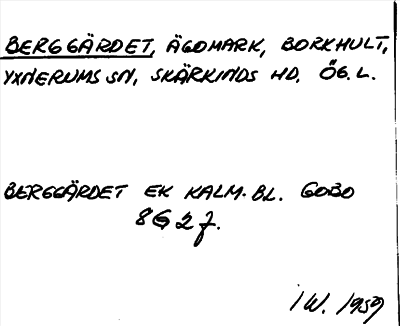 BERGGÄRDET, ÄGOMARK, BORKHULT,
YXNERUMS SN, SKÄRKINDS HD, ÖG. L.
BERGGÄRDET EK KALM. BL. GOBO
8G 2 f.
IW. 1959